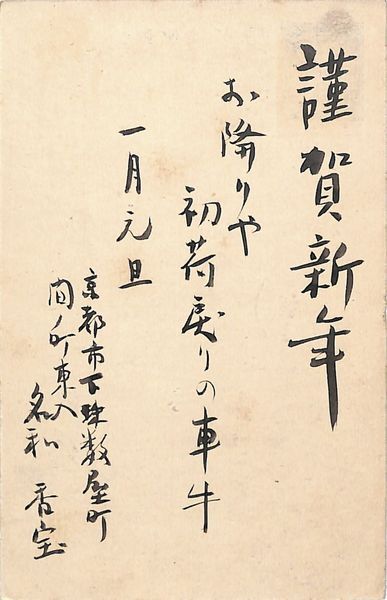 謹賀新年
お降りや
初荷戻りの車牛
一月元旦
京都市下珠数屋町
間ノ町東入
名和 香宝